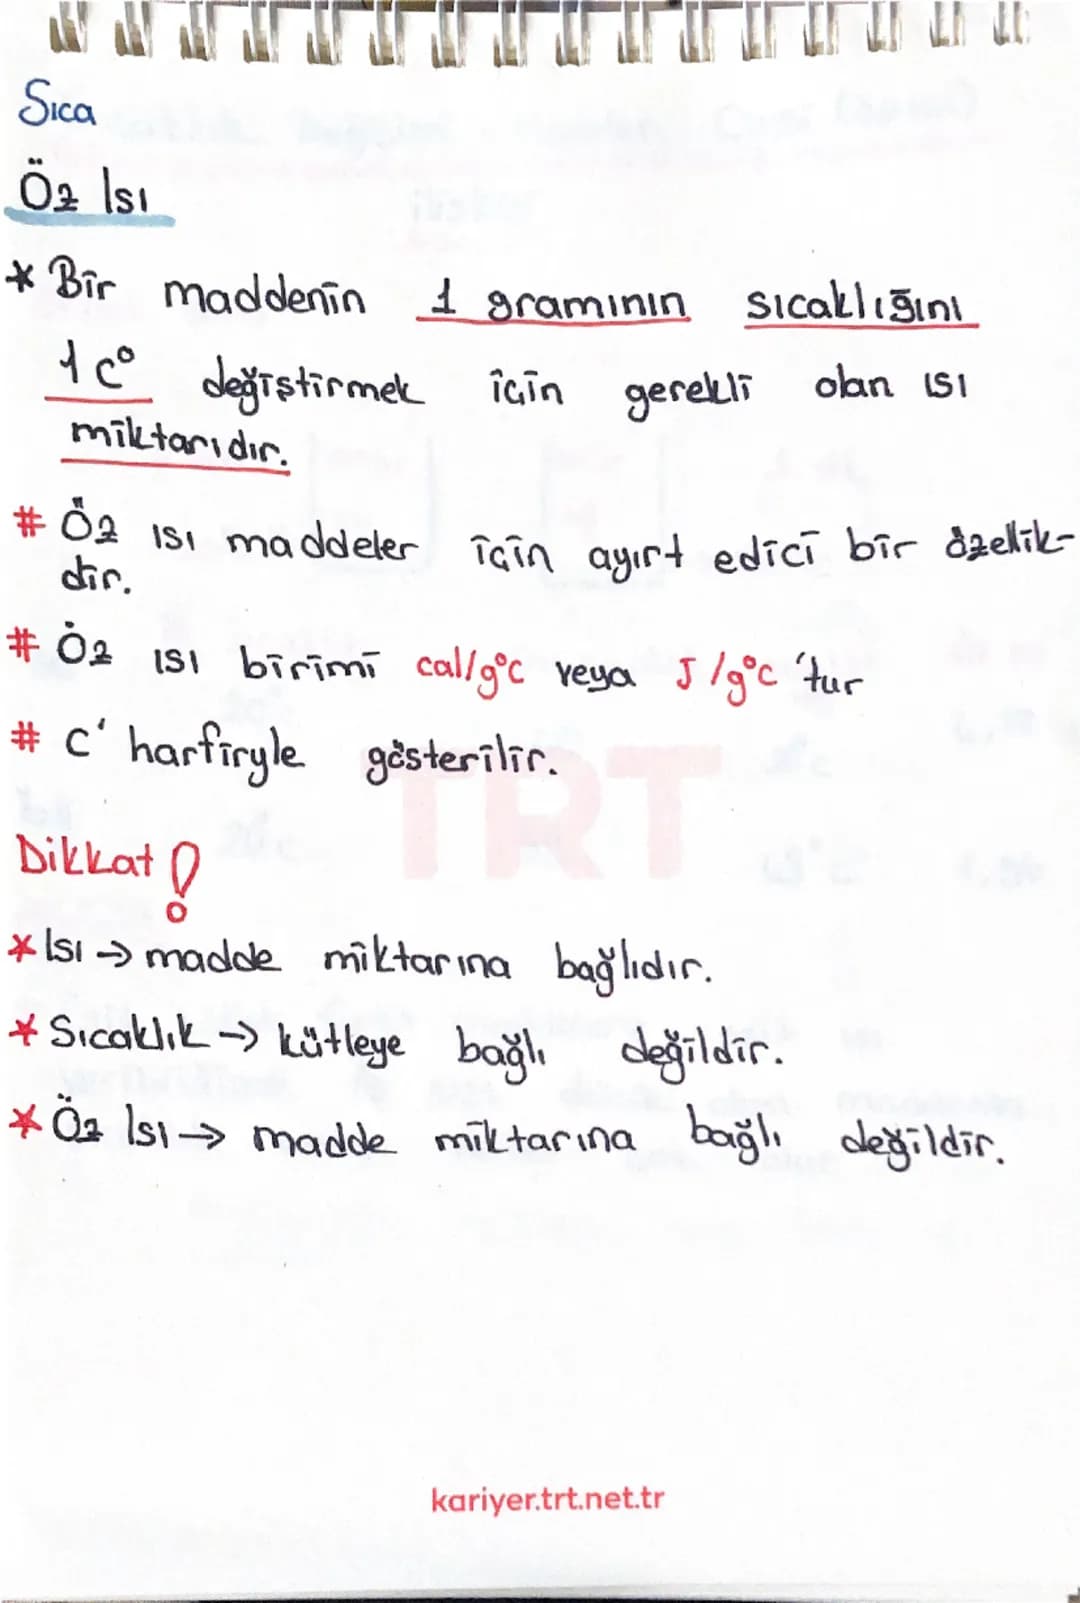 Sıca
Öz Isı
* Bir maddenin 1 gramının sıcaklığını
1 c° değiştirmek için gerekli olan ısı
miktarıdır.
# Öz ısı maddeler için ayırt edici bir özellik-
dir.
# Öz ısı birimi cal/g°c veya J/g°c 'tur
# C' harfiryle gösterilir.
TRT
Dikkat !
* Isı → madde miktarına bağlıdır.
* Sıcaklık → kütleye bağlı değildir.
* Öz Isı → madde miktarına bağlı değildir.
kariyer.trt.net.tr